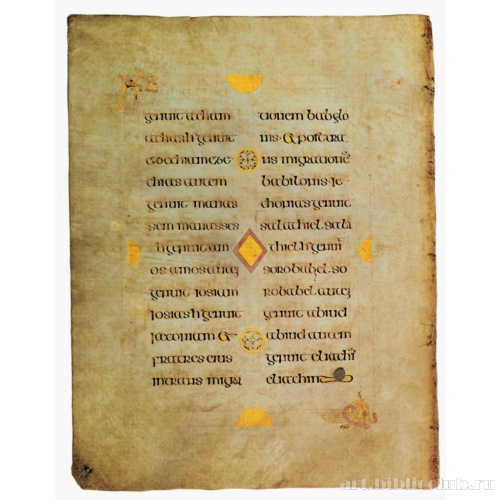 genuit acham
achas h genuit
ezechiam eze
chias autem
genuit manas
sem manasses
h genuit am
os amos auꝫ
genuit iosiam
iosias h genuit
iaeconiam &
fratres eius
in trans migra
tionem babylo
nis & post tra
ns migrationē
babilonis ie
chonias genuit
salathiel sala
thiel h genuit
sorobabel so
robabel auꝫ
genuit abiud
abiud autem
genuit eliachī
eliachim
art.biblioclub.ru